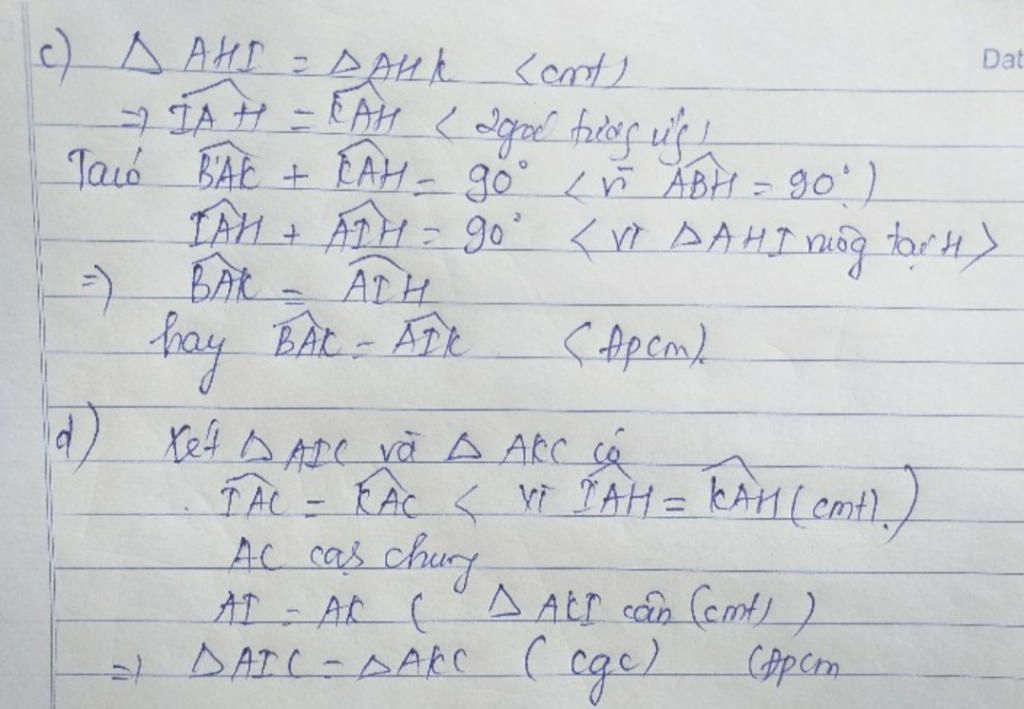 Dat
c) Δ AHI = Δ AHK (cmt)
=> IAH = KAH (2 góc tương ứg)
Ta có BAK + KAH = 90° (vì ABH = 90°)
IAH + AIH = 90° (vì Δ AHI vuôg tại H)
=> BAK = AIH
hay BAK = AIK (đpcm).
d) Xét Δ AIC và Δ AKC có
IAC = KAC (vì IAH = KAH (cmt).)
AC cạh chung
AI = AK (Δ AKI cân (cmt))
=> Δ AIC = Δ AKC (cgc) (đpcm